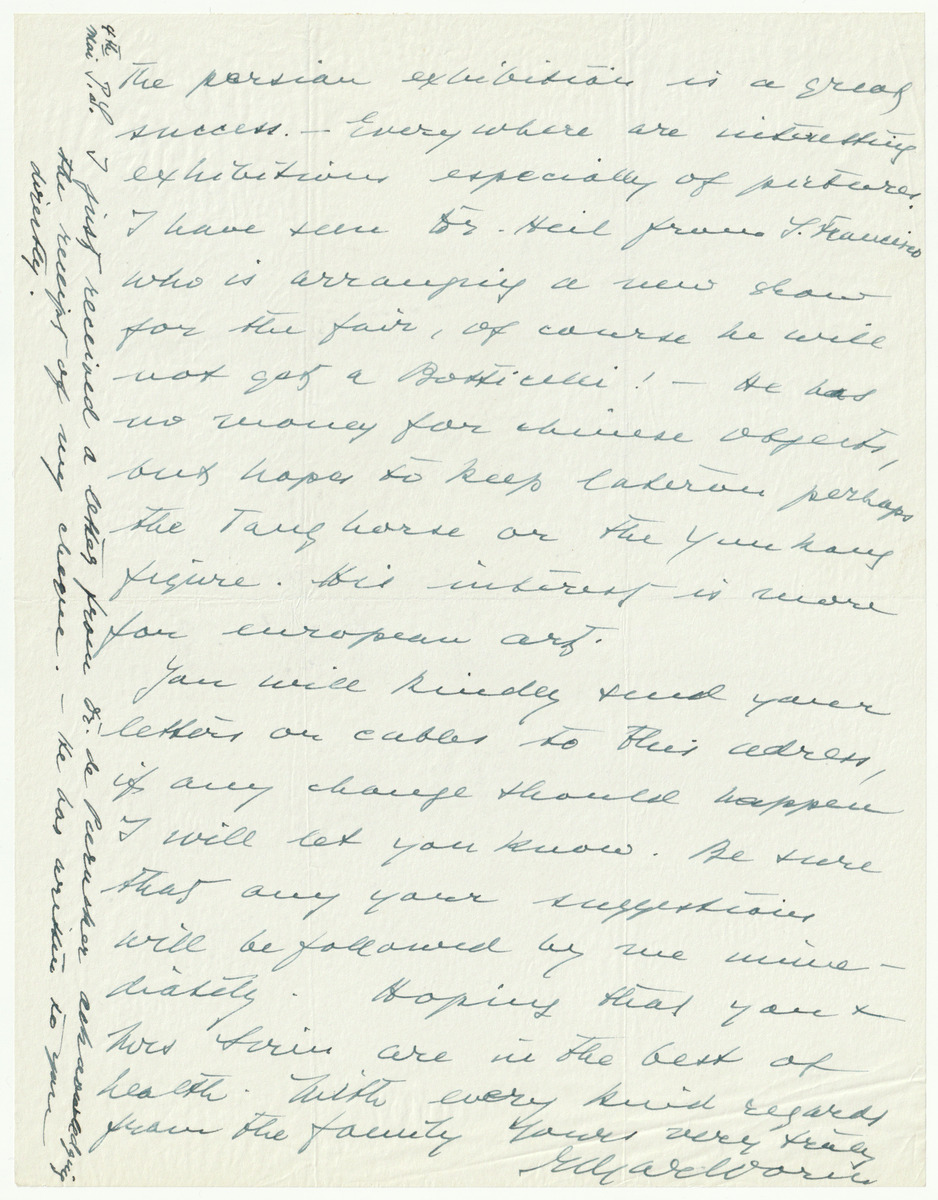 The persian exhibition is a great
success. — Everywhere are interesting
exhibitions especially of pictures.
I have seen Dr. Heil from S. Francisco
who is arranging a new show
for the fair, of course he will
not get a Botticelli! — He has
no money for chinese objects,
but hopes to keep lateron perhaps
the Tang horse or the Yun Kang
figure. His interest is more
for european art.
You will kindly send your
letters or cables to this adress,
if any change should happen
I will let you know. Be sure
that any your suggestions
will be followed by me imme-
diately. Hoping that you +
Mrs are in the best of
health. With every kind regards
from the family Yours very truly
Edgar Worch
4th Mai P.S. I just received a letter from Dr. de acknowledging
the receipt of my cheque. — He has written to you
directly.